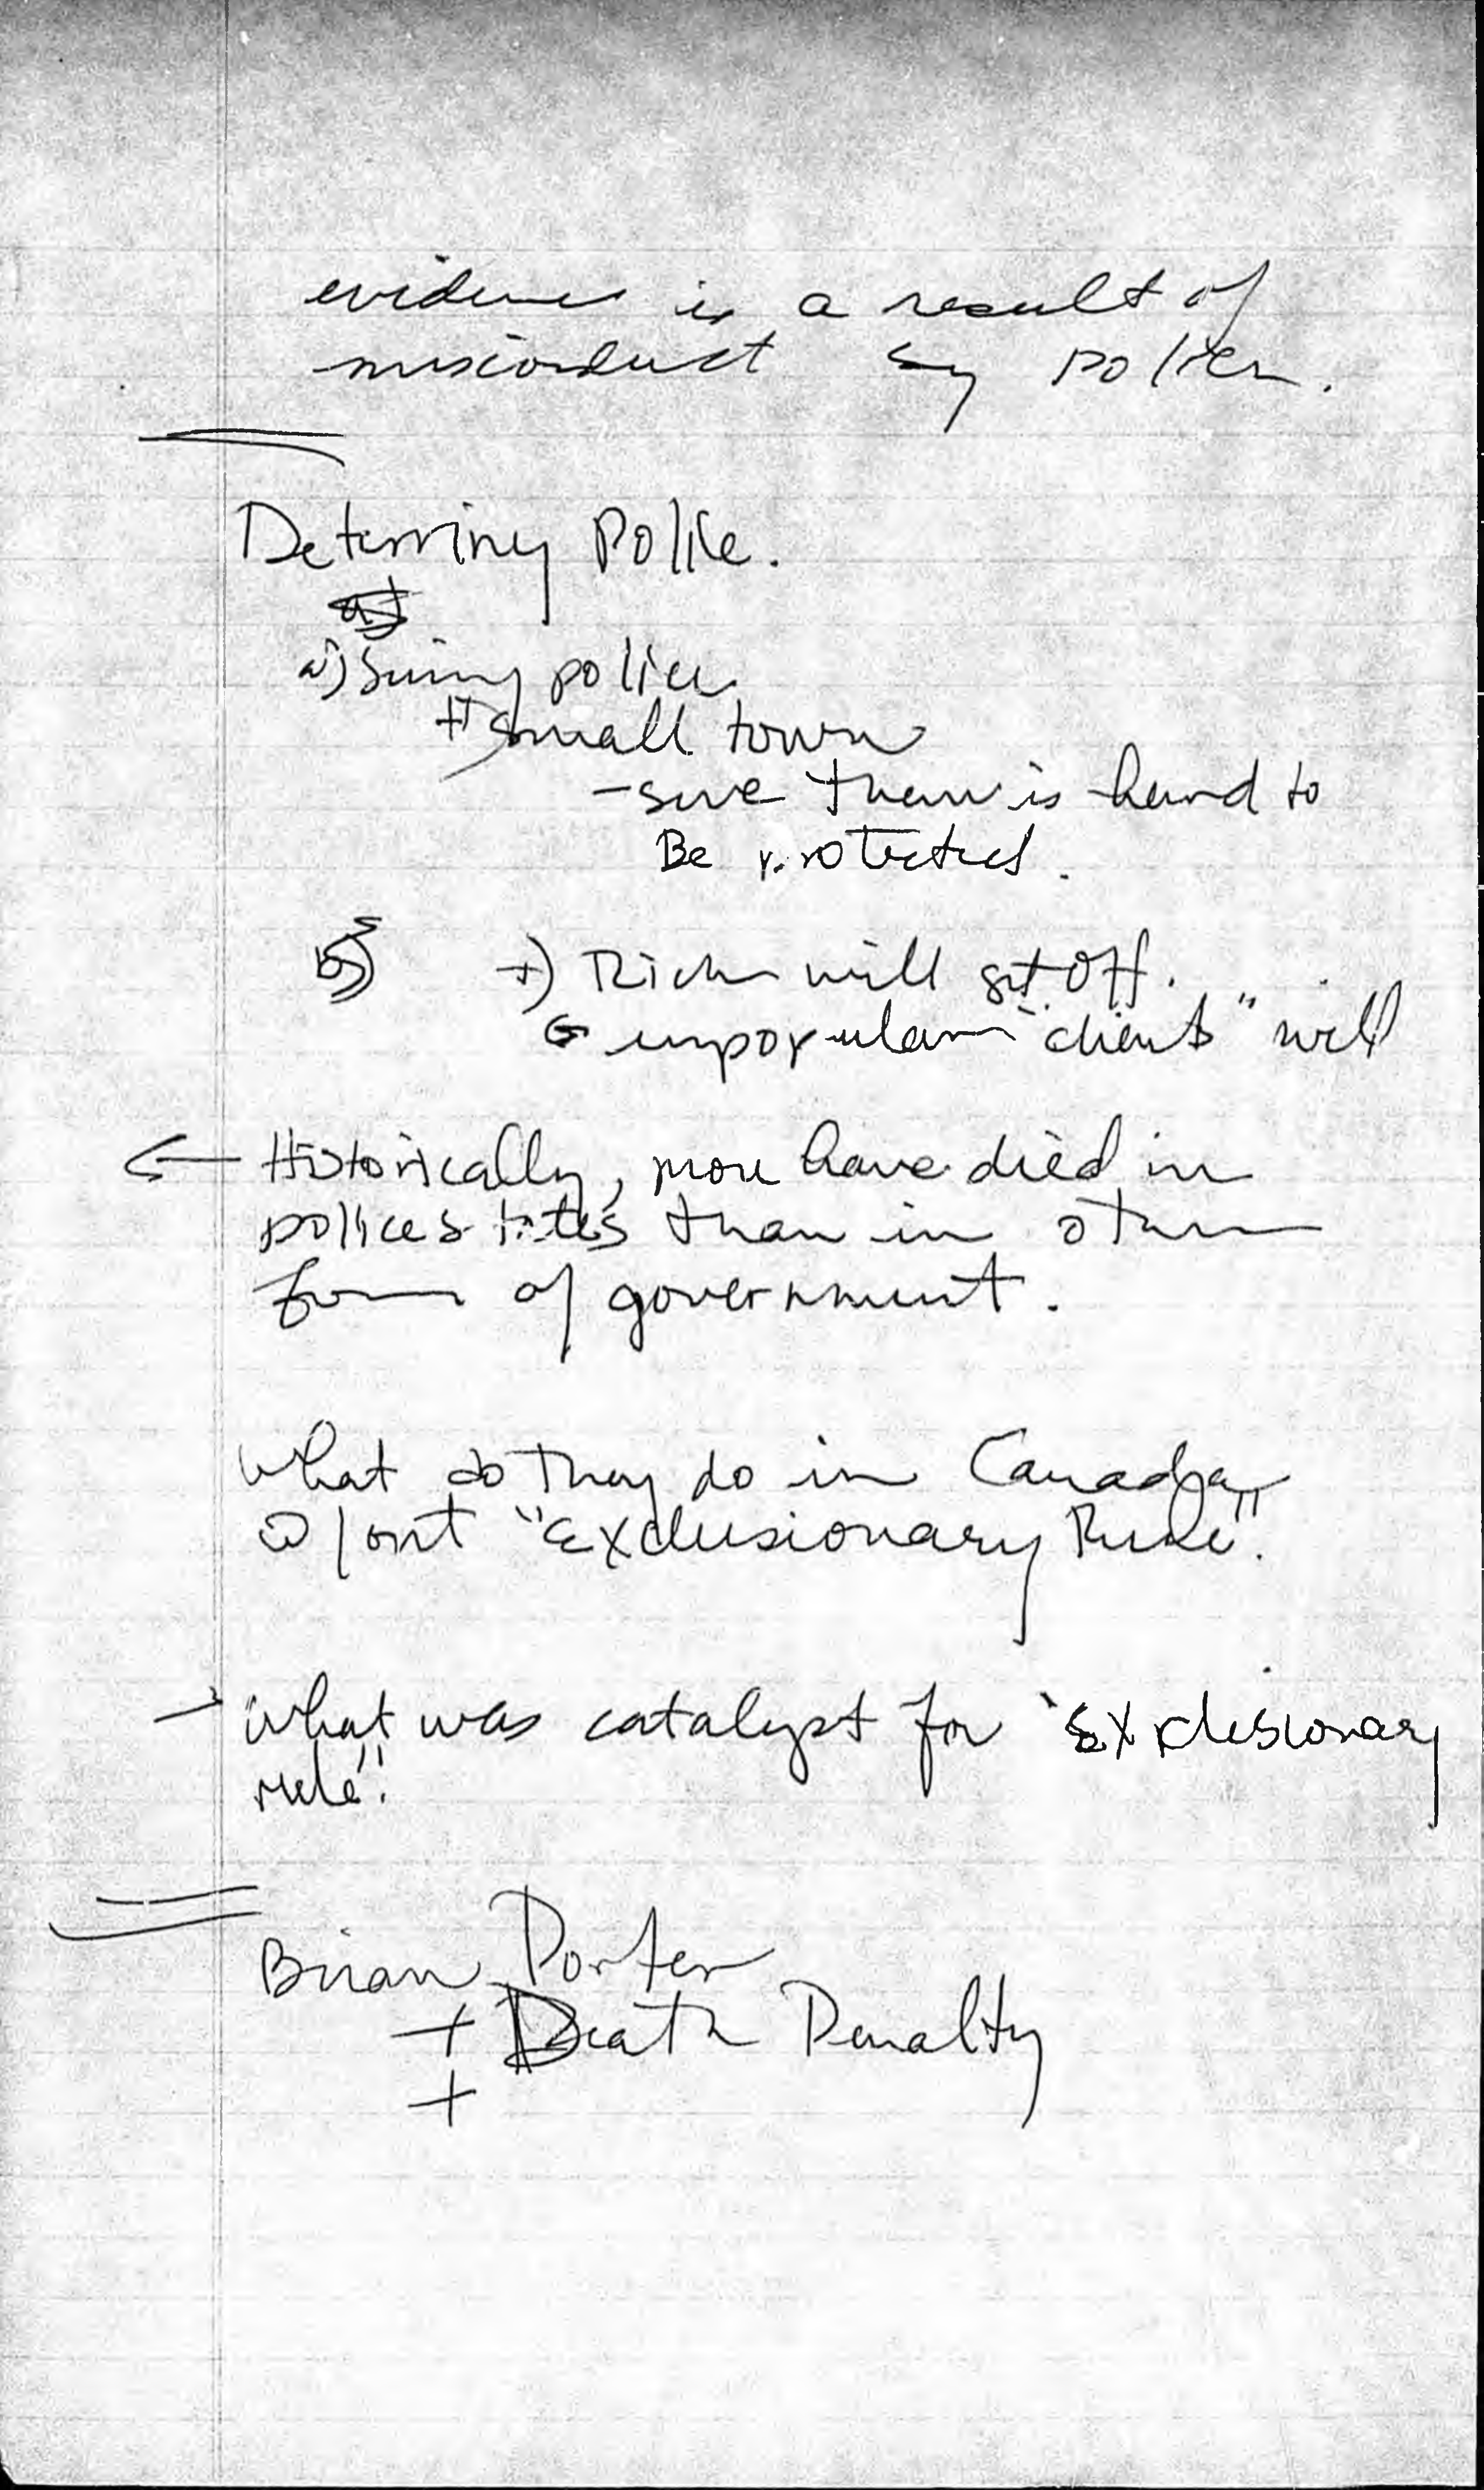 evidence is a result of
misconduct by police.
Deterring Police.
a) Suing police
+) small town
- sure them is hard to
Be protected.
b) +) Rich will get off.
unpopular "clients" will
← Historically, more have died in
police states than in other
form of government.
What do they do in Canada
w/out "Exclusionary Rule".
- What was catalyst for "Exclusionary
rule".
Brian Porter
+ Death Penalty
+